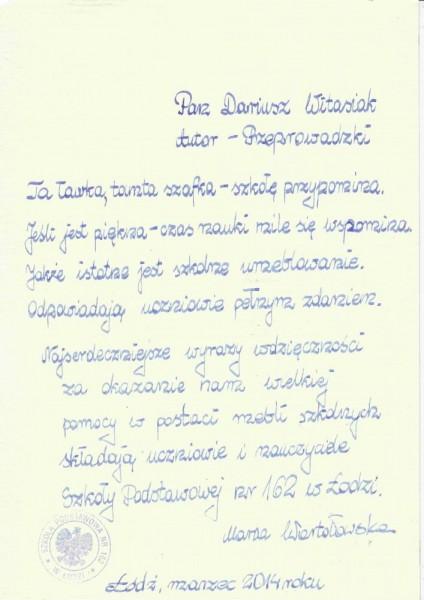 Pan Dariusz Witasiak
Autor - Przeprowadzki
Ta ławka, tamta szafka - szkołę przypomina.
Jeśli jest piękna - czas nauki mile się wspomina.
Jakże istotne jest szkolne umeblowanie.
Odpowiadają uczniowie pełnym zdaniem.
Najserdeczniejsze wyrazy wdzięczności
za okazanie nam wielkiej
pomocy w postaci mebli szkolnych
składają uczniowie i nauczyciele
Szkoły Podstawowej nr 162 w Łodzi.
SZKOŁA PODSTAWOWA NR 162
W ŁODZI
Łódź, marzec 2014 roku